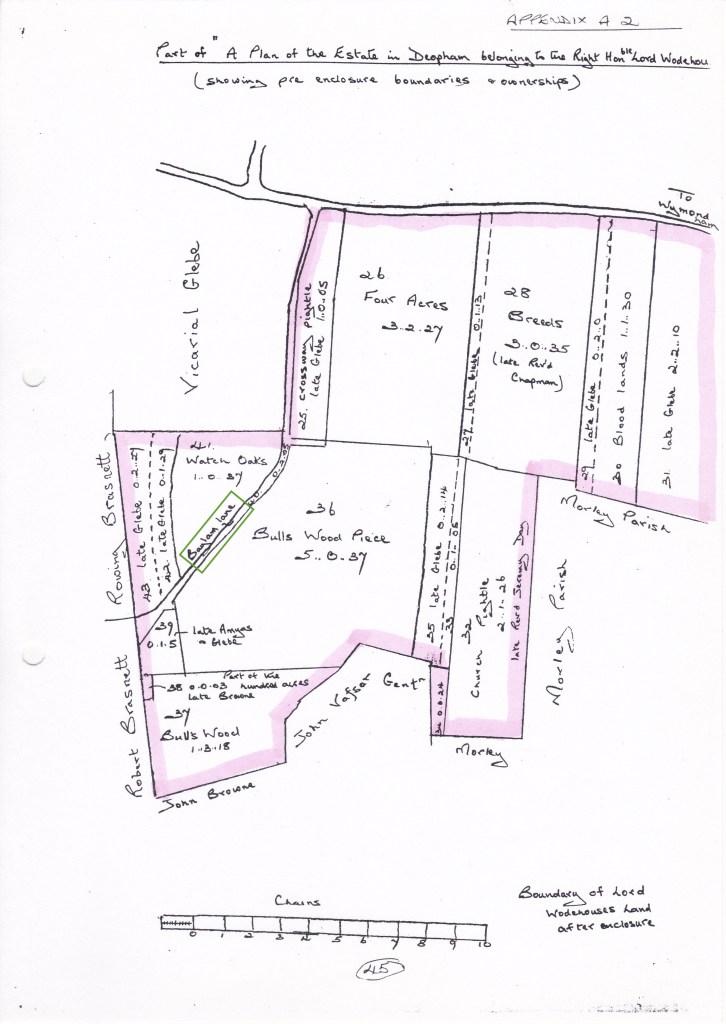 APPENDIX A 2
Part of "A Plan of the Estate in Deopham belonging to the Right Honble Lord Wodehou
(showing pre enclosure boundaries & ownerships)
To
Wymondham
Vicarial Glebe
25. Crossway Pightle
late Glebe 1..0..05
26
Four Acres
3..2..27
27 late Glebe 0..1..13
28
Breeds
3..0..35
(late Rev'd
Chapman)
29 late Glebe 0..2..0
30 Blood lands 1..1..30
31 late Glebe 2..2..10
Morley Parish
41.
Watch Oaks
1..0..37
40
Baglam Lane
43 late Glebe 0..2..27
42 late Glebe 0.1.29
Rowing Brasnett
36
Bulls Wood Piece
5..0..37
35 late Glebe 0..2..14
33
32
Church Pightle
2..1..26
late Rev'd Jeremy Day
Morley Parish
39
0.1.5
late Amyas
& Glebe
Part of the
hundred acres
38 0.0.03
late Browne
37
Bull's Wood
1..3..18
Robert Brasnett
John Browne
John
Gentn
34 0.0.24
Morley
Chains
0 1 2 3 4 5 6 7 8 9 10
Boundary of Lord
Wodehouses Land
after enclosure
45